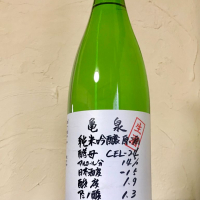 亀泉
純米吟醸原酒
酵母 CEL-24
アルコール分 14
日本酒度
酸度 1.9
アミノ酸 1.3